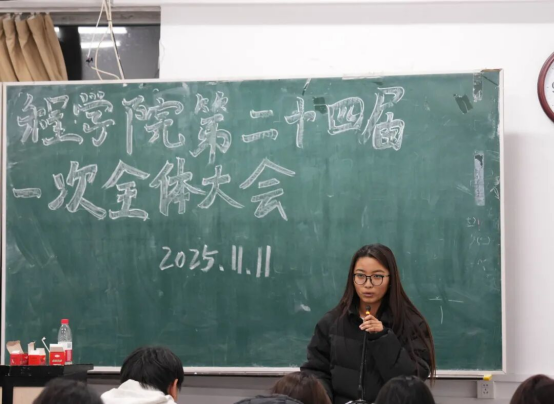 学院第二十四届
一次全体大会
2025.11.11